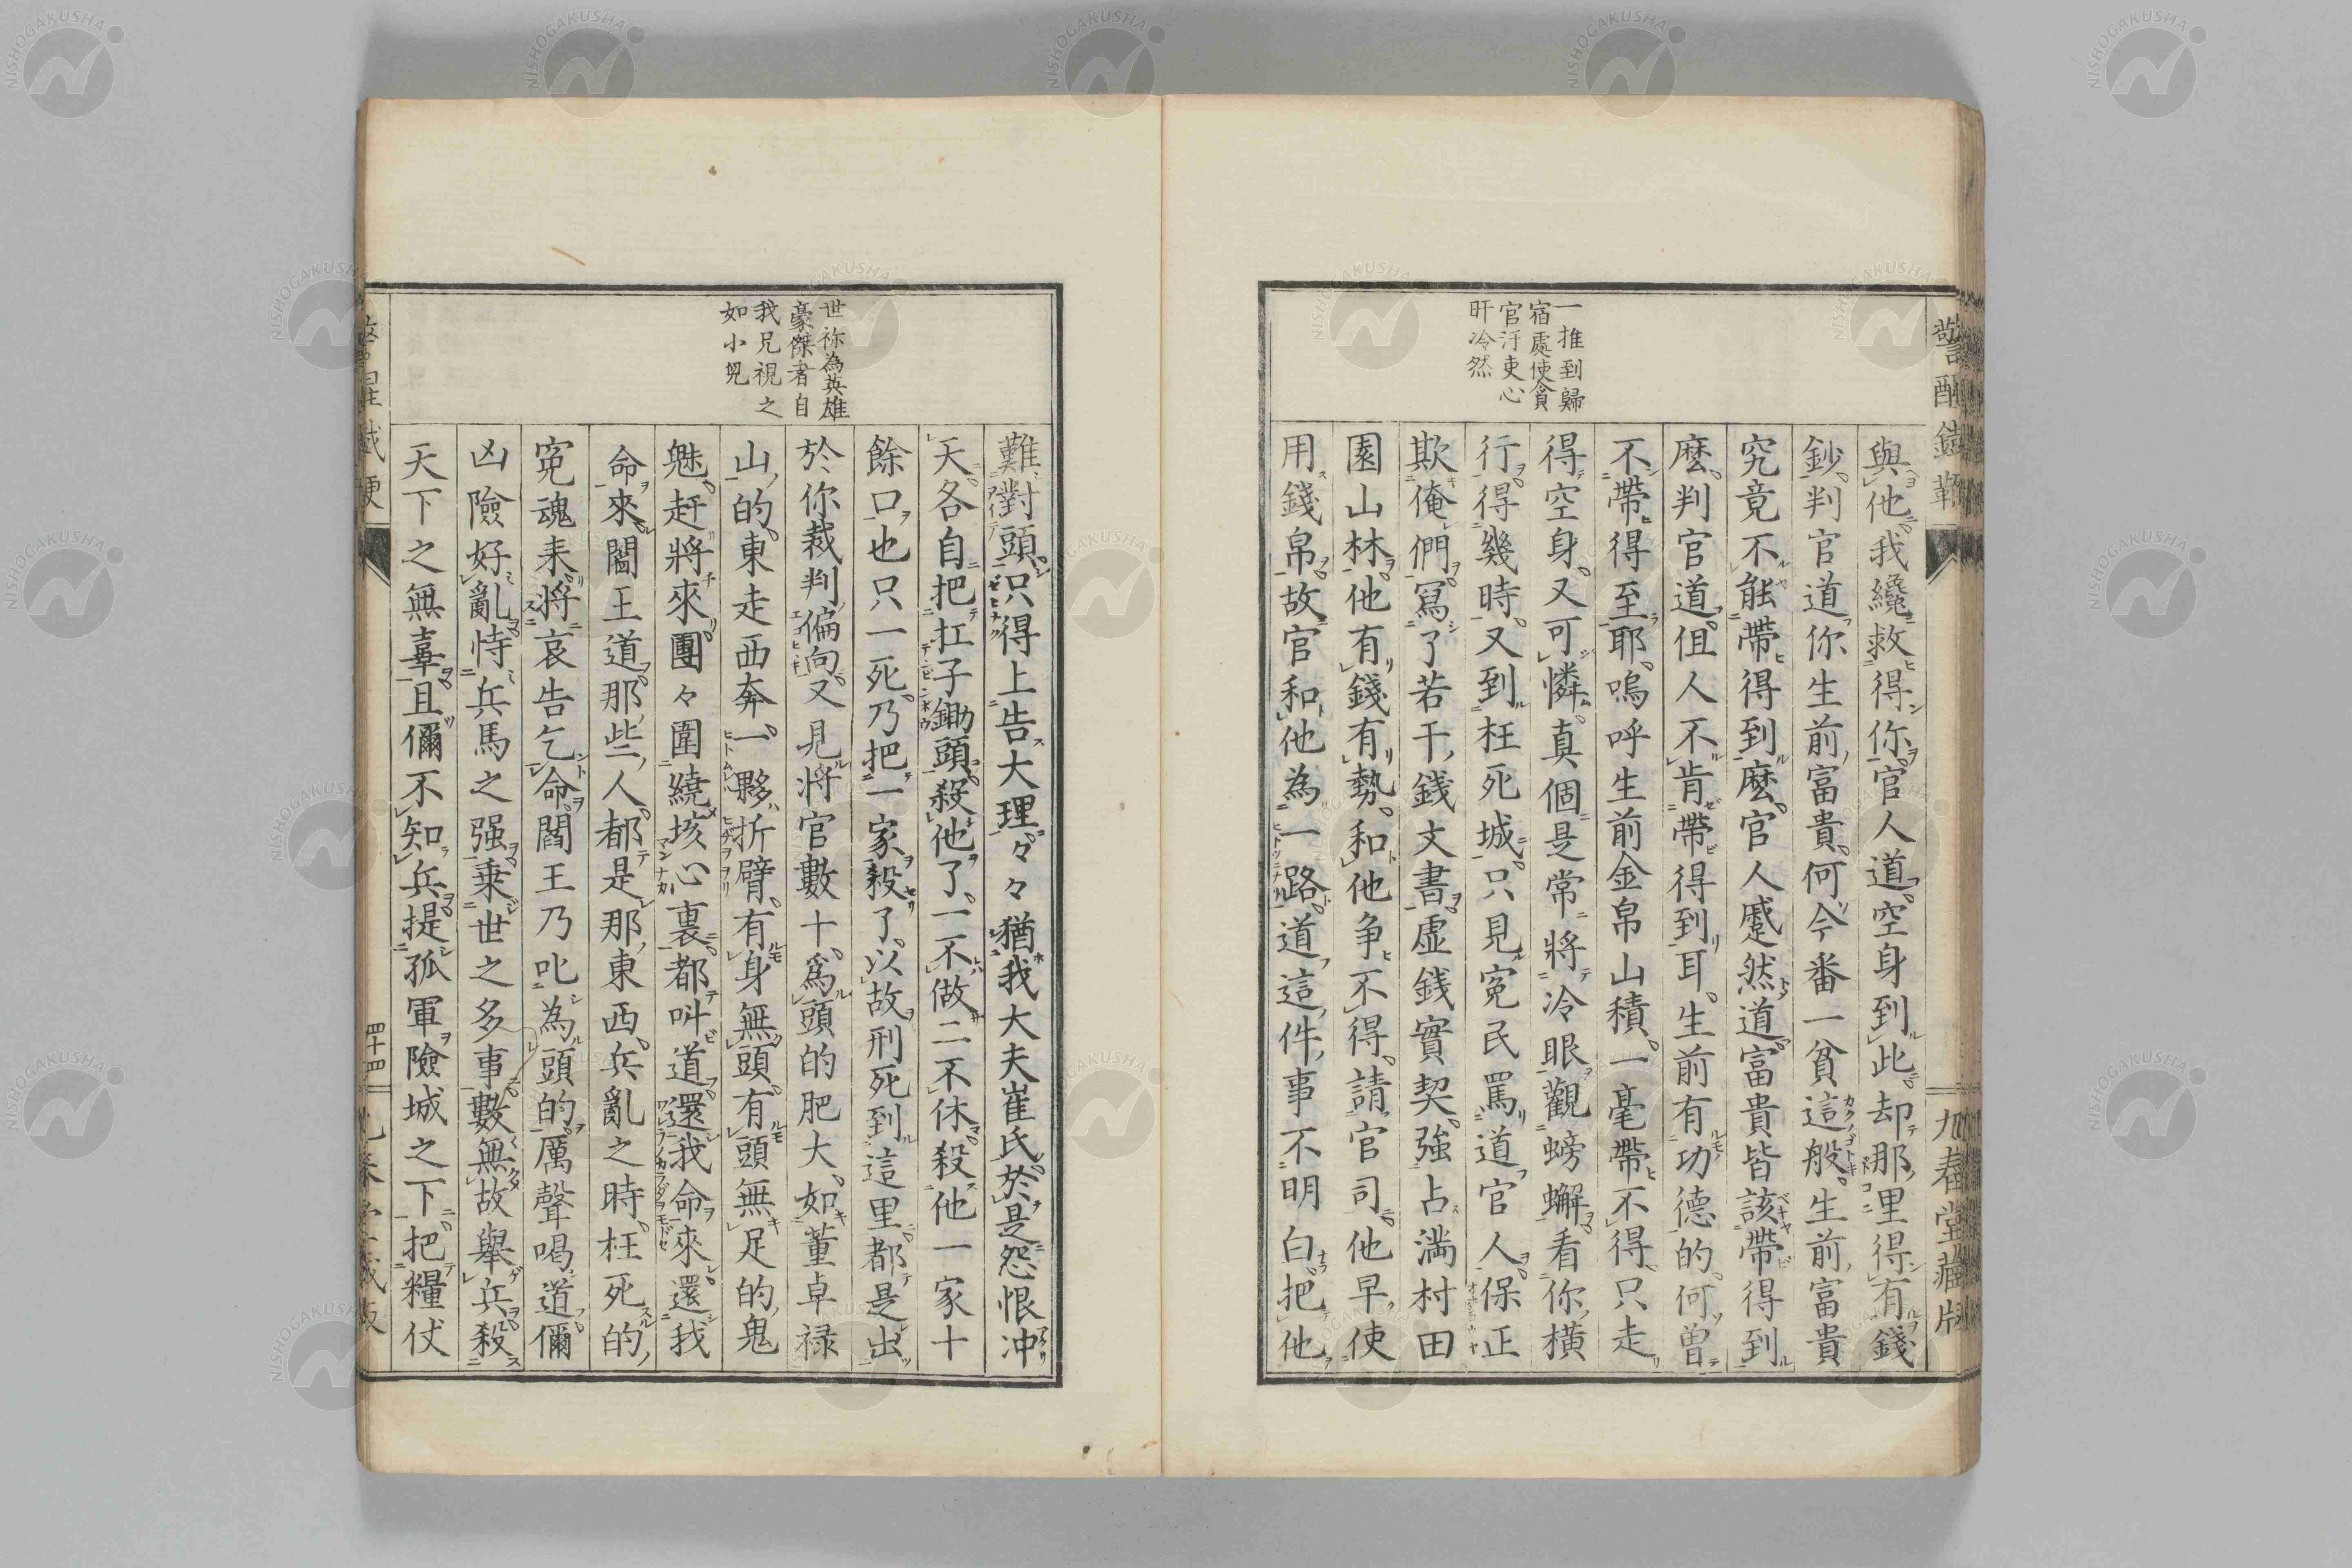 警醒鐵鞭
九春堂藏版
一推到歸
宿處使貪
官汙吏心
肝冷然
與他我纔救得你官人道空身到此却那里得有錢
鈔判官道你生前富貴何今番一貧這般生前富貴
究竟不能帶得到麼官人蹙然道富貴皆該帶得到
麼判官道但人不肯帶得到耳生前有功德的何曽
不帶得至耶嗚呼生前金帛山積一毫帶不得只走
得空身又可憐真個是常將冷眼觀螃蠏看你橫
行得幾時又到枉死城只見寃民罵道官人保正
欺俺們寫了若干錢文書虛錢實契強占満村田
園山林他有錢有勢和他争不得請官司他早使
用錢帛故官和他為一路道這件事不明白把他
世祢為英雄
豪傑者自
我兄視之
如小兒
難對頭只得上告大理々々猶我大夫崔氏於是怨恨冲
天各自把扛子鋤頭殺他了一不做二不休殺他一家十
餘口也只一死乃把一家殺了以故刑死到這里都是出
於你裁判偏向又見將官數十爲頭的肥大如董卓禄
山的東走西奔一夥折臂有身無頭有頭無足的鬼
魅赶將來團々圍繞垓心裏都叫道還我命來還我
命來閻王道那些人都是那東西兵亂之時枉死的
寃魂来將哀告乞命閻王乃叱為頭的厲聲喝道儞
凶險好亂恃兵馬之强乗世之多事數無故舉兵殺
天下之無辜且儞不知兵提孤軍險城之下把糧仗
四十四